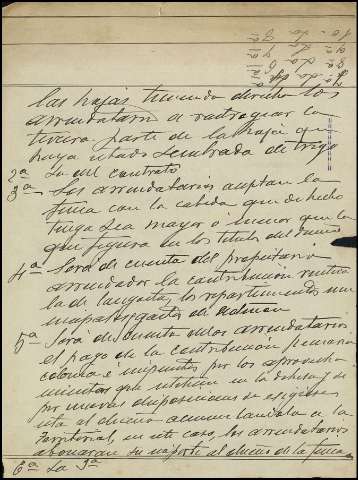 las hojas teniendo derecho los
arrendatarios a rastrojear la
tercera parte de la hoja que
haya estado sembrada de trigo
2ª La del contrato
3ª Los arrendatarios aceptan la
finca con la cabida que de hecho
tenga sea mayor ó menor que la
que figura en los titulos del dueño
4ª Será de cuenta del propietario
arrendador la contribución rustica
la de langosta, los repartimientos
5ª Será de cuenta de los arrendatarios
el pago de la contribución pecuaria
colonia é impuestos por los aprovecha
mientos que utilicen en la dehesa y si
por nuevas disposiciones se exigiese
esta al dueño acumulandola a la
Territorial, en este caso, los arrendatarios
abonaran su importe al dueño de la finca
6ª La 7ª